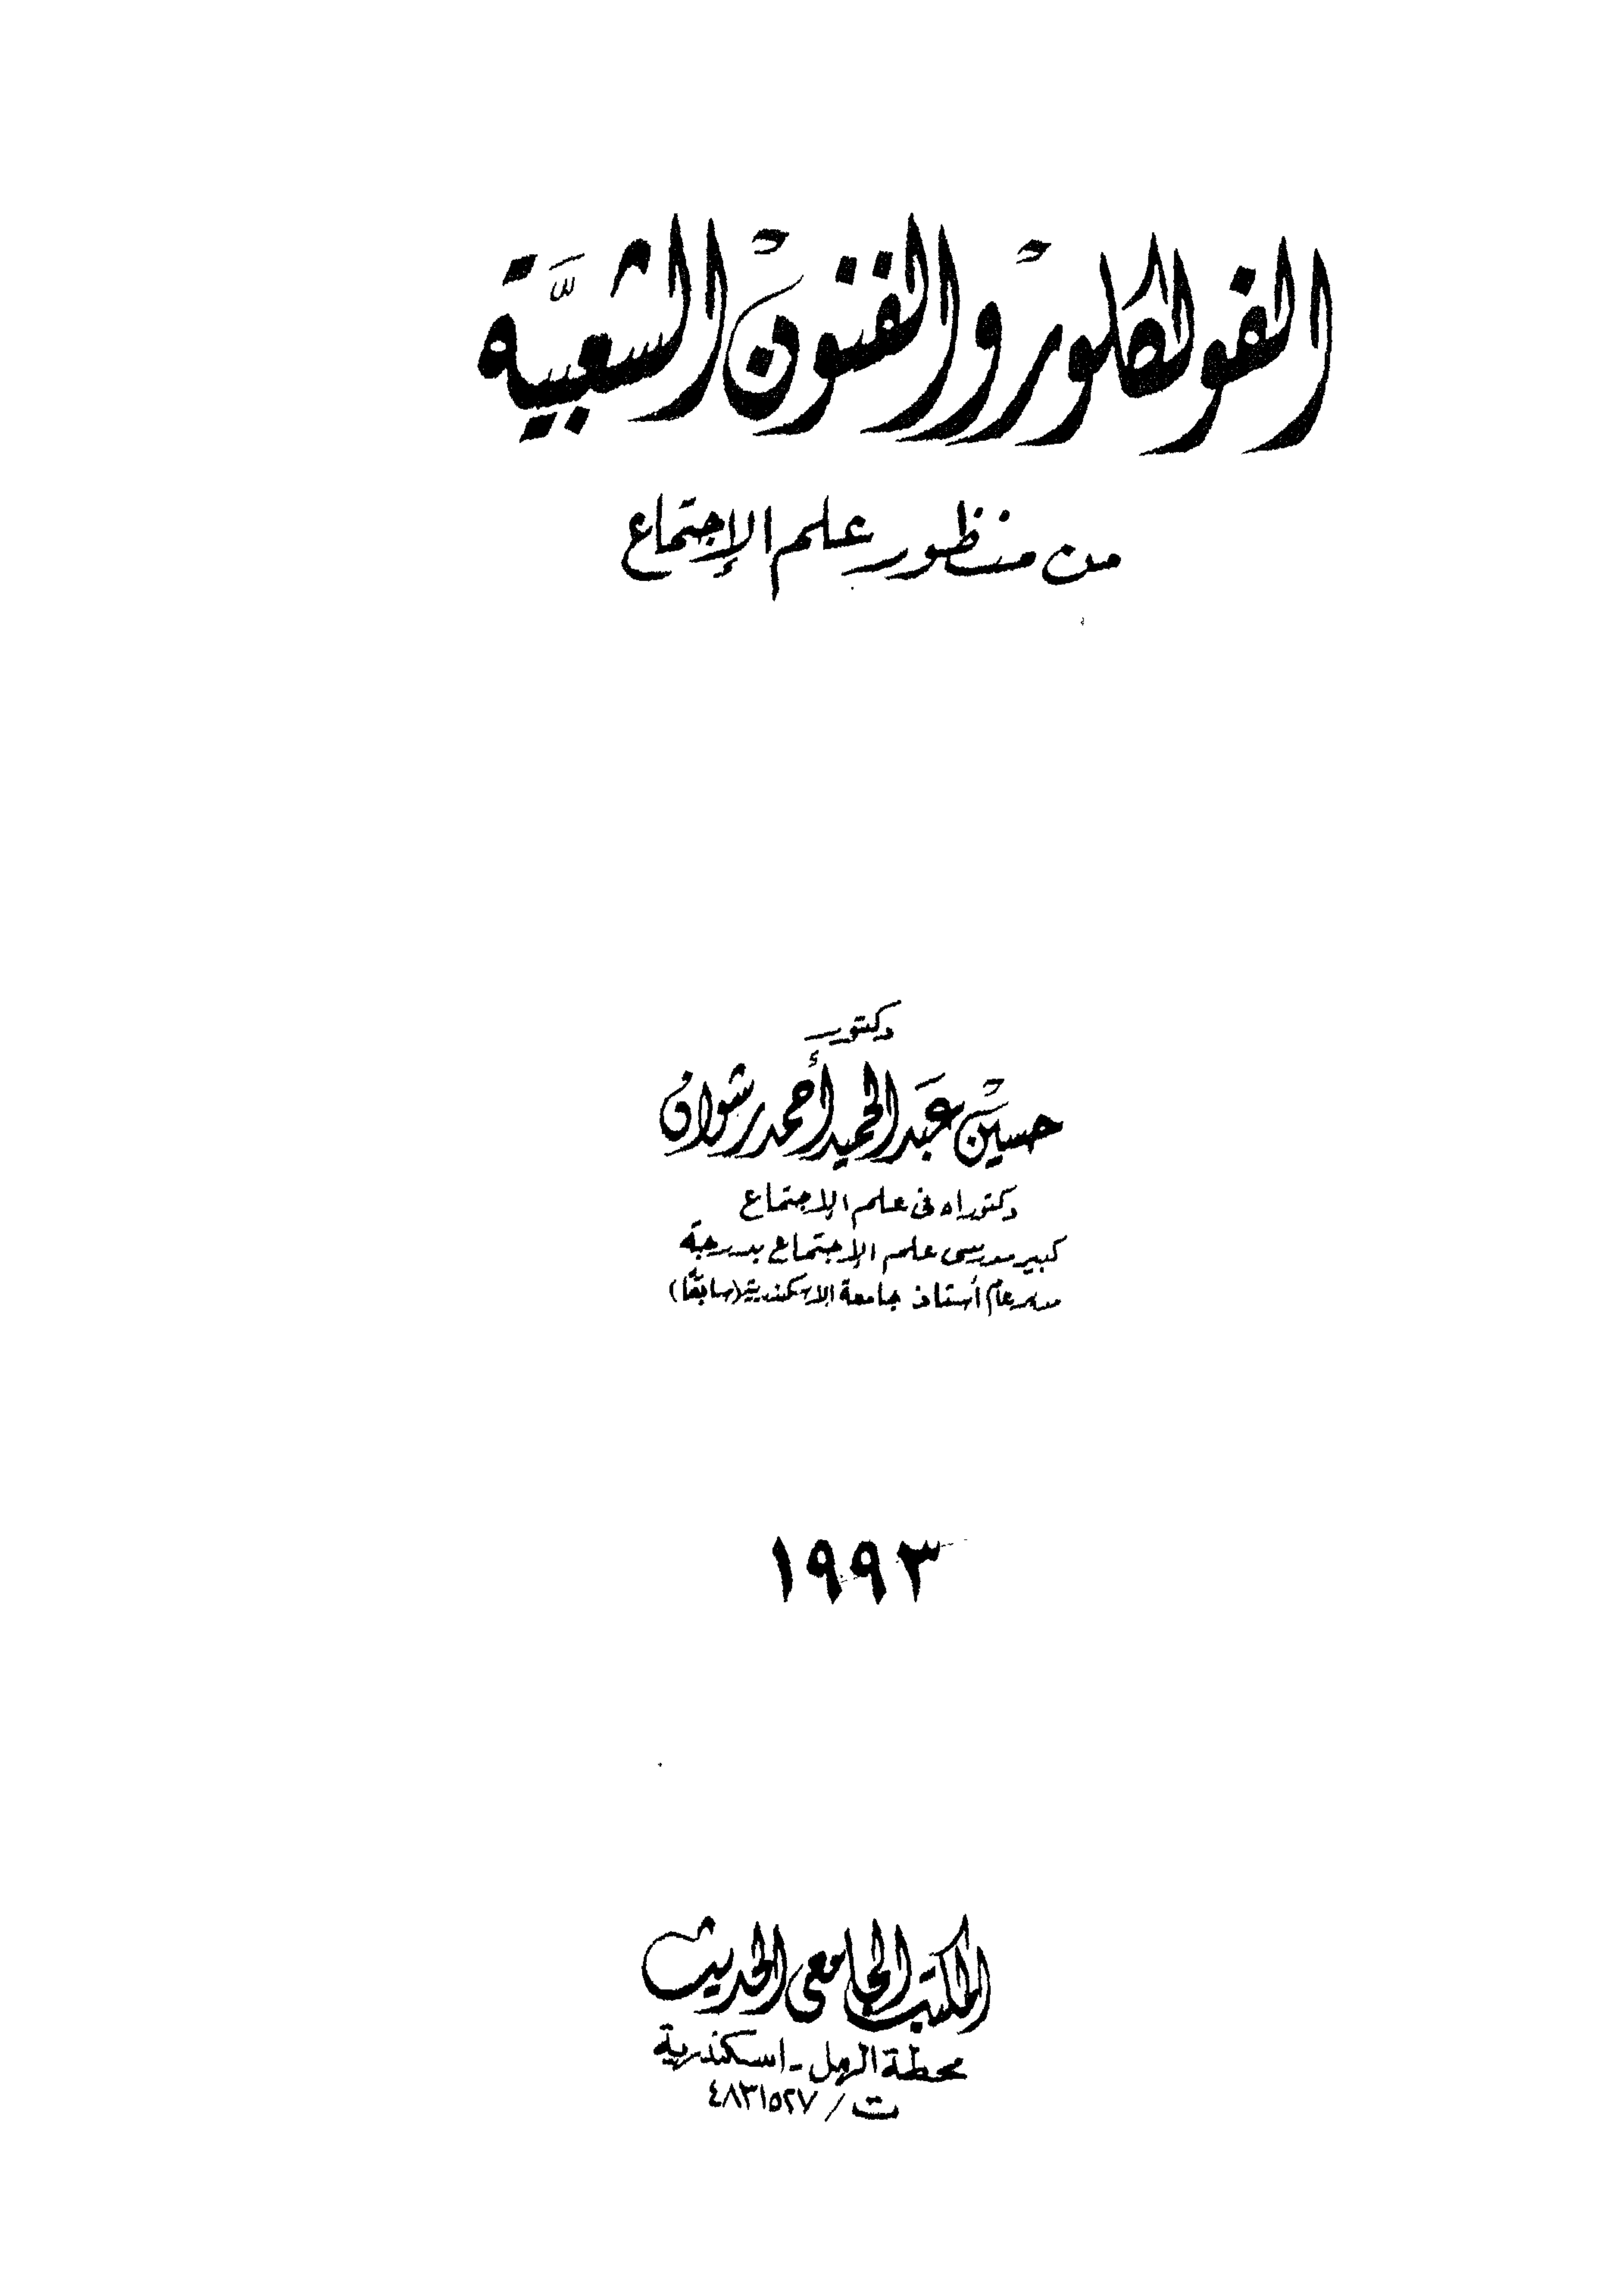 الفولكلور والفنون الشعبيَّة
من منظور علم الإجتماع
دكتور
حسين عبد الحميد أحمد رشوان
دكتوراه فى علم الإجتماع
كبير مدرسى علم الإجتماع بدرجة
مدير عام أستاذ جامعة الاسكندرية (سابقًا)
١٩٩٣
المكتب الجامعى الحديث
محطة الرمل - اسكندرية
ت / ٤٨٣١٥٢٧